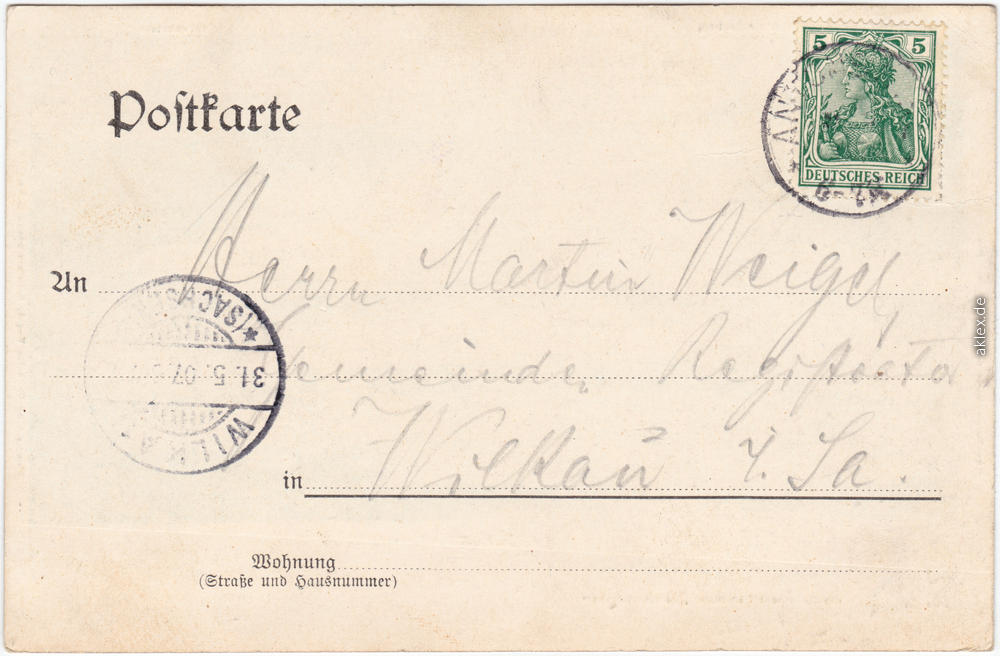 5 5
DEUTSCHES REICH
Postkarte
Herrn Martin Weigel,
An
(SACHS
31. 5. 07
Gemeinde Registrator
WILKA
in Wilkau i. Sa.
Wohnung
(Straße und Hausnummer)
aklex.de